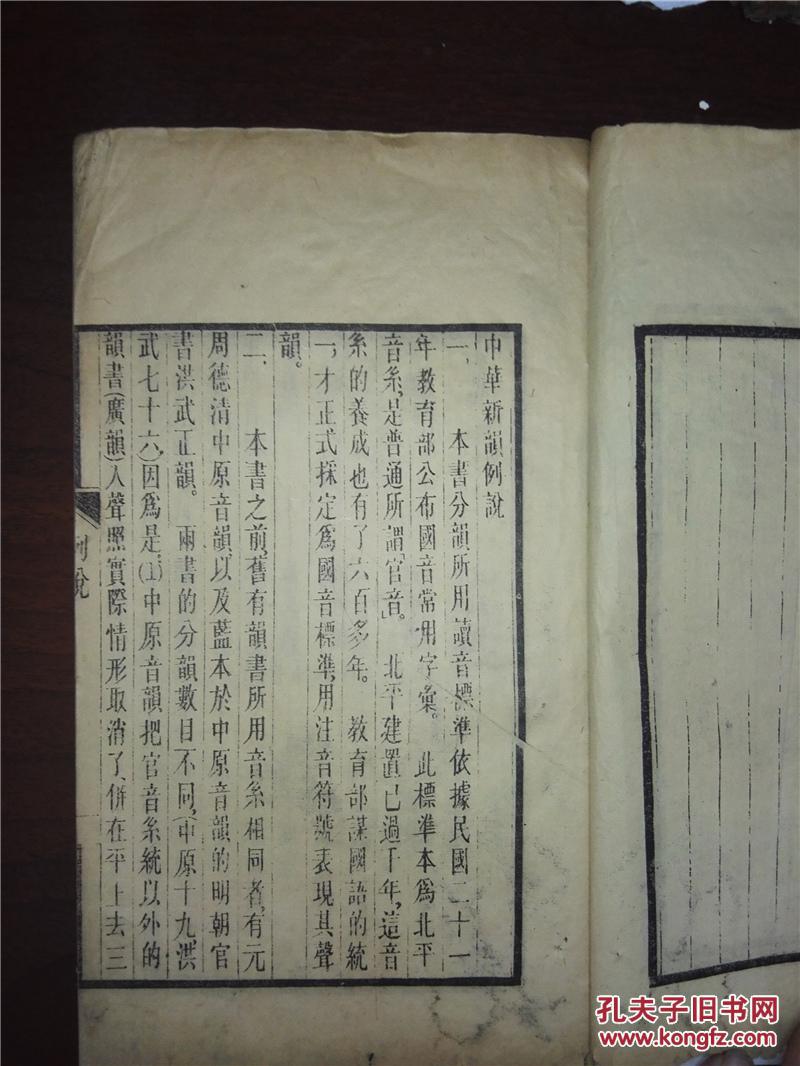 中華新韻例說
一、本書分韻所用讀音標準依據民國二十一
年教育部公布國音常用字彙。此標準本爲北平
音系，是普通所謂「官音」。北平建置已過千年，這音
系的養成也有了六百多年。教育部謀國語的統
一，才正式採定爲國音標準，用注音符號表現其聲
韻。
二、本書之前，舊有韻書所用音系相同者，有元
周德清中原音韻，以及藍本於中原音韻的明朝官
書洪武正韻。兩書的分韻數目不同，（中原十九，洪
武七十六）因爲是，(1)中原音韻把官音系統以外的
韻書（廣韻）入聲照實際情形取消了，併在平上去三
例說
孔夫子旧书网
www.kongfz.com